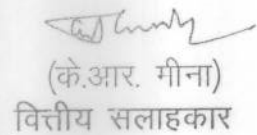 (के.आर. मीना)
वित्तीय सलाहकार